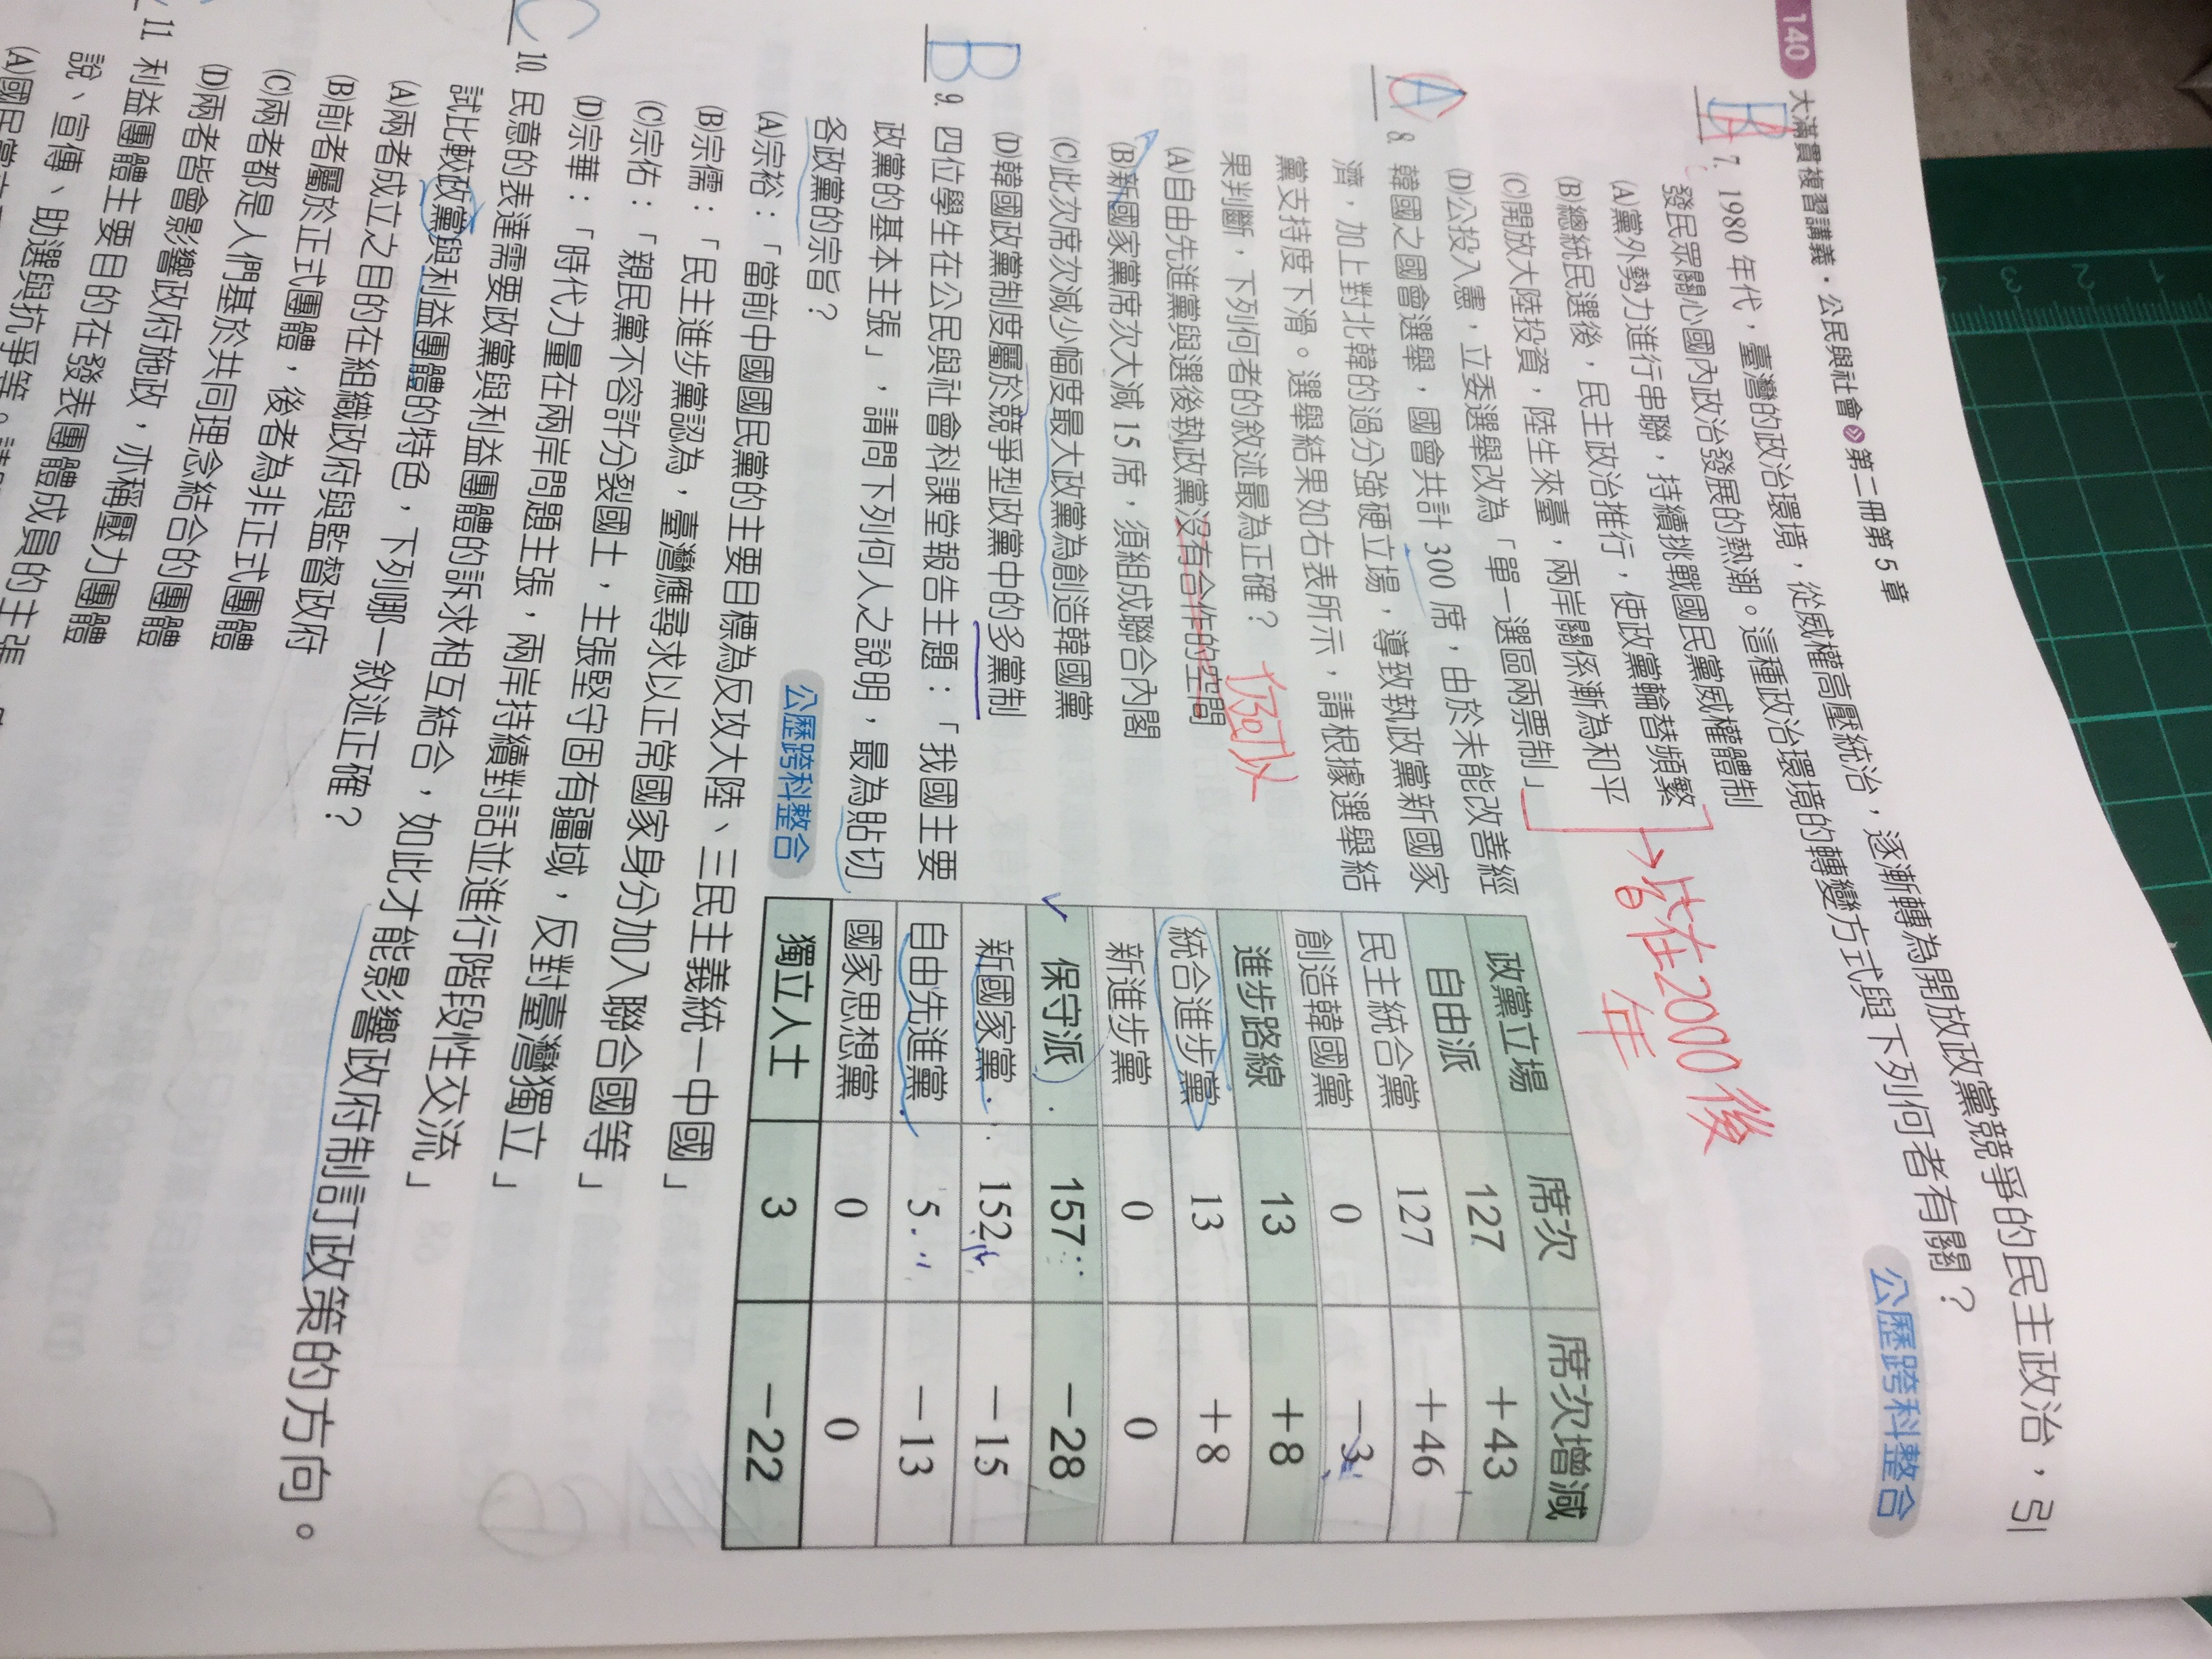 140 大滿貫複習講義・公民與社會 第二冊第5章
B A 7. 1980年代,臺灣的政治環境,從威權高壓統治,逐漸轉為開放政黨競爭的民主政治,引
發民眾關心國內政治發展的熱潮。這種政治環境的轉變方式與下列何者有關?
公歷跨科整合
(A)黨外勢力進行串聯,持續挑戰國民黨威權體制
(B)總統民選後,民主政治推行,使政黨輪替頻繁
(C)開放大陸投資,陸生來臺,兩岸關係漸為和平
(D)公投入憲,立委選舉改為「單一選區兩票制」
→皆在2000後
年
A 8. 韓國之國會選舉,國會共計300席,由於未能改善經
濟,加上對北韓的過分強硬立場,導致執政黨新國家
黨支持度下滑。選舉結果如右表所示,請根據選舉結
果判斷,下列何者的敘述最為正確?
(A)自由先進黨與選後執政黨沒有合作的空間
仍可以
(B)新國家黨席次大減15席,須組成聯合內閣
(C)此次席次減少幅度最大政黨為創造韓國黨
(D)韓國政黨制度屬於競爭型政黨中的多黨制
政黨立場 席次 席次增減
自由派 127 +43
民主統合黨 127 +46
創造韓國黨 0 -3
進步路線 13 +8
統合進步黨 13 +8
新進步黨 0 0
保守派 157 -28
新國家黨 152 -15
自由先進黨 5 -13
國家思想黨 0 0
獨立人士 3 -22
B 9. 四位學生在公民與社會科課堂報告主題:「我國主要
政黨的基本主張」,請問下列何人之說明,最為貼切
各政黨的宗旨?
公歷跨科整合
(A)宗裕:「當前中國國民黨的主要目標為反攻大陸、三民主義統一中國」
(B)宗儒:「民主進步黨認為,臺灣應尋求以正常國家身分加入聯合國等」
(C)宗佑:「親民黨不容許分裂國土,主張堅守固有疆域,反對臺灣獨立」
(D)宗華:「時代力量在兩岸問題主張,兩岸持續對話並進行階段性交流」
C 10. 民意的表達需要政黨與利益團體的訴求相互結合,如此才能影響政府制訂政策的方向。
試比較政黨與利益團體的特色,下列哪一敘述正確?
(A)兩者成立之目的在組織政府與監督政府
(B)前者屬於正式團體,後者為非正式團體
(C)兩者都是人們基於共同理念結合的團體
(D)兩者皆會影響政府施政,亦稱壓力團體
11. 利益團體主要目的在發表團體成員的主張
說、宣傳、助選與抗爭等。請
(A)國民黨